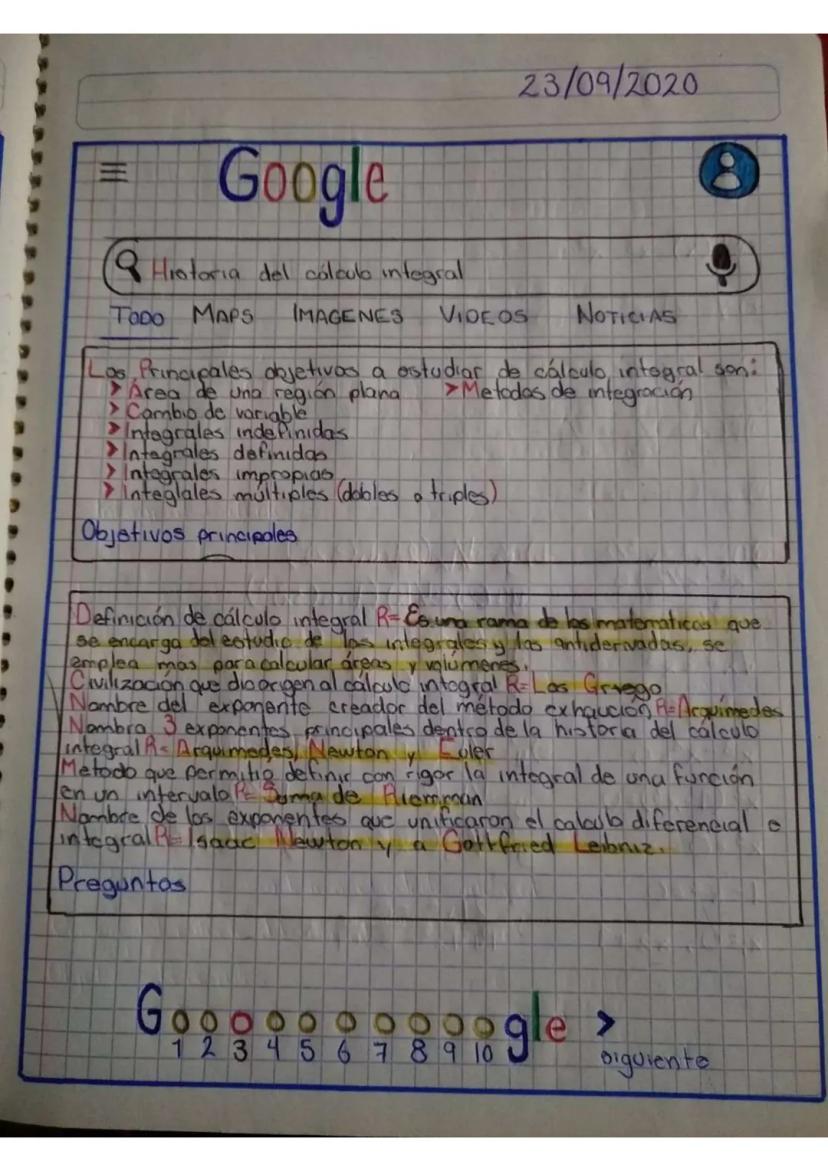 23/09/2020
Google
Historia del cálculo integral
TODO MAPS IMAGENES VIDEOS NOTICIAS
Los Principales objetivos a estudiar de cálculo integral son:
> Área de una región plana > Metodos de integración
> Cambio de variable
> Integrales indefinidas
> Integrales definidas
> Integrales impropias
> Integlales múltiples (dobles o triples)
Objetivos principales
Definición de cálculo integral R= Es una rama de las matematicas que
se encarga del estudio de las integrales y las antiderivadas, se
emplea mas para calcular áreas y volúmenes.
Civilización que dio origen al cálculo integral R= Los Griego
Nombre del exponente creador del método exhaución R= Arquimedes
Nombra 3 exponentes principales dentro de la historia del cálculo
integral R= Arquimedes, Newton y Euler
Metodo que permitio definir con rigor la integral de una función
en un intervalo R= Suma de Riemman
Nombre de los exponentes que unificaron el calculo diferencial e
integral R= Isaac Newton y a Gottfried Leibniz.
Preguntas
Goooooooooogle >
1 2 3 4 5 6 7 8 9 10 siguiente